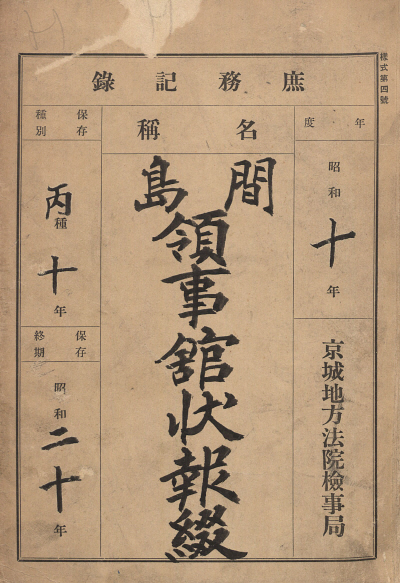 樣式第四號
庶務記錄
年度
昭和十年
京城地方法院檢事局
名稱
間島領事館狀報綴
保存種別
丙種十年
保存終期
昭和二十年